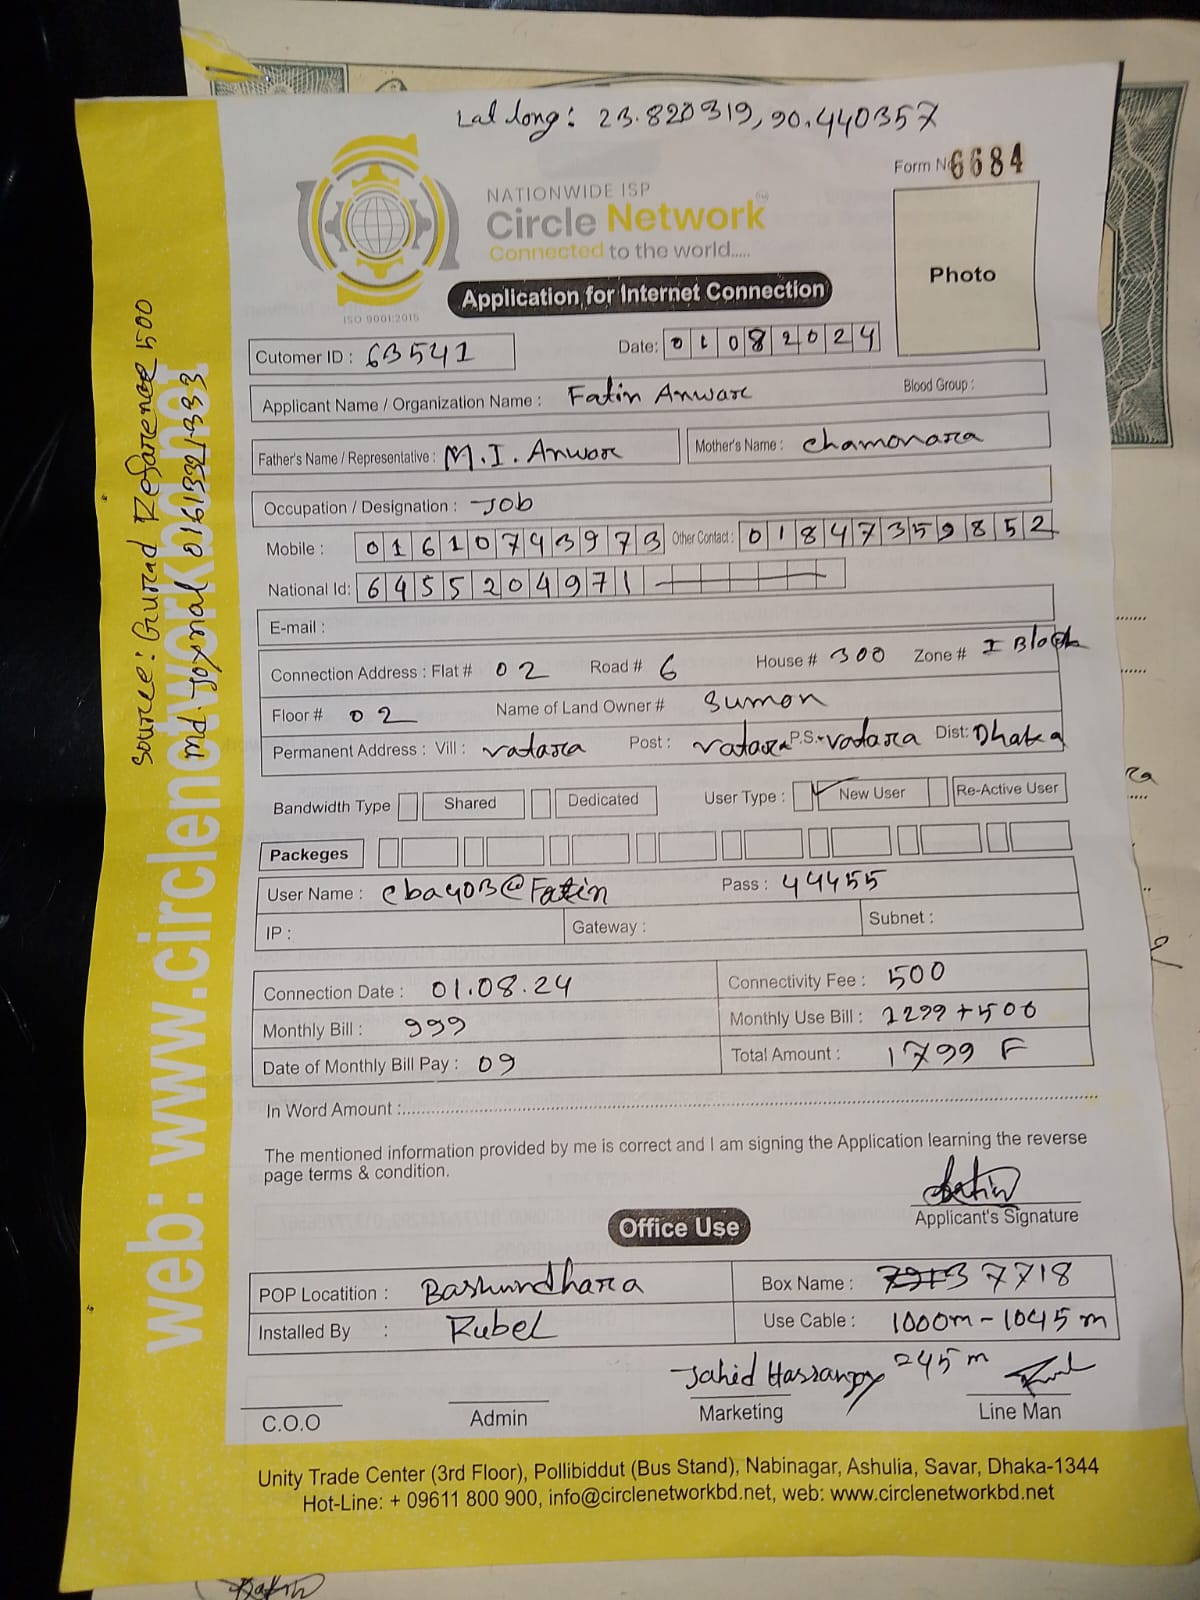 Lat long: 23.820319, 90.440357
Form No 6684
NATIONWIDE ISP
Circle Network
Connected to the world.....
ISO 9001:2015
Photo
Application for Internet Connection
Cutomer ID : 63541
Date: 01082024
Applicant Name / Organization Name : Fatin Anwar
Blood Group :
Father's Name / Representative : M.I. Anwar
Mother's Name : Chamonara
Occupation / Designation : Job
Mobile : 01610743973 Other Contact : 01847359852
National Id: 6455204971
E-mail :
Connection Address : Flat # 02 Road # 6 House # 300 Zone # I Block
Floor # 02 Name of Land Owner # Sumon
Permanent Address : Vill : vatara Post : vatara P.S.- vatara Dist: Dhaka
Bandwidth Type Shared Dedicated User Type : New User Re-Active User
Packeges
User Name : cba403@Fatin Pass : 44455
IP : Gateway : Subnet :
Connection Date : 01.08.24 Connectivity Fee : 500
Monthly Bill : 999 Monthly Use Bill : 1299 + 500
Date of Monthly Bill Pay : 09 Total Amount : 1799 F
In Word Amount :
The mentioned information provided by me is correct and I am signing the Application learning the reverse
page terms & condition.
Fatin
Applicant's Signature
Office Use
POP Locatition : Bashundhara Box Name : 37718
Installed By : Rubel Use Cable : 1000m - 1045 m
Jahid Hassan 245 m
C.O.O Admin Marketing Line Man
Unity Trade Center (3rd Floor), Pollibiddut (Bus Stand), Nabinagar, Ashulia, Savar, Dhaka-1344
Hot-Line: + 09611 800 900, info@circlenetworkbd.net, web: www.circlenetworkbd.net
web: www.circlenetworkbd.net
Source: Gurad Refarence 1500
MD. Joynal 01613321333